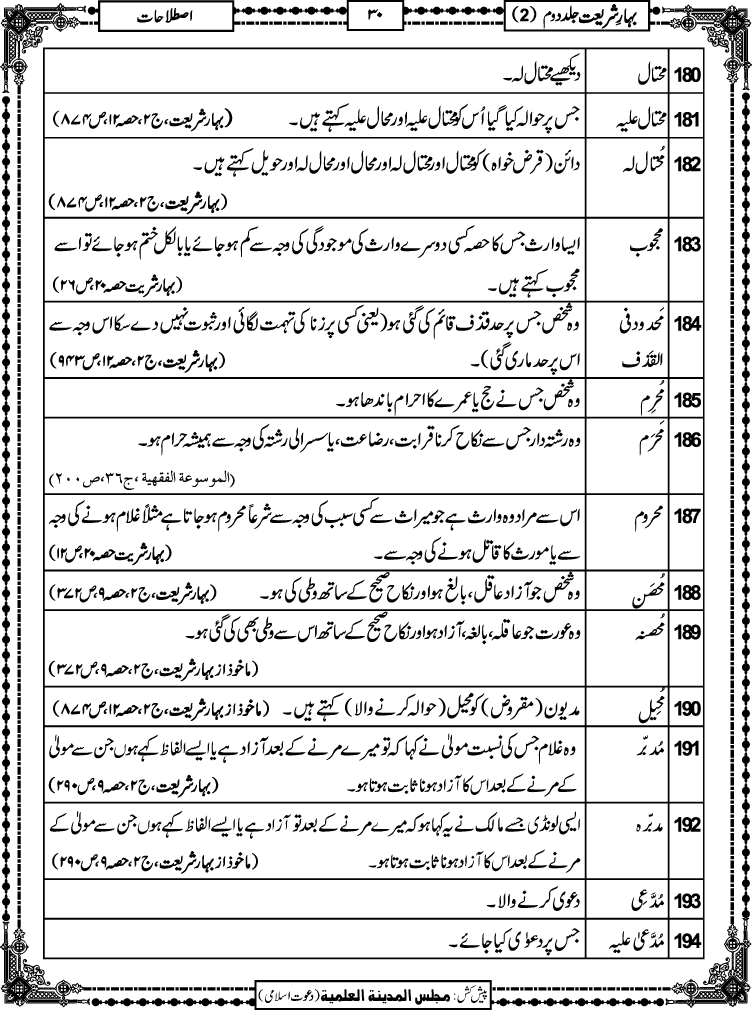 بہارِ شریعت جلد دوم (2)
۳۰
اصطلاحات
180 محتال دیکھیے محتال لہ۔
181 محتال علیہ جس پر حوالہ کیا گیا اُس کو محتال علیہ اور محال علیہ کہتے ہیں۔ (بہار شریعت، ج۲، حصہ۱۲، ص۸۷۴)
182 مُحتال لہ دائن (قرض خواہ) کو محتال اور محتال لہ اور محال اور محال لہ اور حویل کہتے ہیں۔
(بہار شریعت، ج۲، حصہ۱۲، ص۸۷۴)
183 محجوب ایسا وارث جس کا حصہ کسی دوسرے وارث کی موجودگی کی وجہ سے کم ہو جائے یا بالکل ختم ہو جائے تو اسے
محجوب کہتے ہیں۔ (بہار شریت حصہ۲۰، ص۲۶)
184 مَحدود فی وہ شخص جس پر حد قذف قائم کی گئی ہو (یعنی کسی پر زنا کی تہمت لگائی اور ثبوت نہیں دے سکا اس وجہ سے
القَذَف اس پر حد ماری گئی)۔ (بہار شریعت، ج۲، حصہ۱۲، ص۹۴۳)
185 مُحرِم وہ شخص جس نے حج یا عمرے کا احرام باندھا ہو۔
186 مَحرَم وہ رشتہ دار جس سے نکاح کرنا قرابت، رضاعت، یا سسرالی رشتہ کی وجہ سے ہمیشہ حرام ہو۔
(الموسوعة الفقهية، ج۳۶، ص۲۰۰)
187 محروم اس سے مراد وہ وارث ہے جو میراث سے کسی سبب کی وجہ سے شرعاً محروم ہو جاتا ہے مثلاً غلام ہونے کی وجہ
سے یا مورث کا قاتل ہونے کی وجہ سے۔ (بہار شریت حصہ۲۰، ص۱۲)
188 مُحصَن وہ شخص جو آزاد عاقل، بالغ ہو اور نکاح صحیح کے ساتھ وطی کی ہو۔ (بہار شریعت، ج۲، حصہ۹، ص۳۷۲)
189 مُحصنہ وہ عورت جو عاقلہ، بالغہ، آزاد ہو اور نکاح صحیح کے ساتھ اس سے وطی بھی کی گئی ہو۔
(ماخوذ از بہار شریعت، ج۲، حصہ۹، ص۳۷۲)
190 مُحِیل مدیون (مقروض) کو محیل (حوالہ کرنے والا) کہتے ہیں۔ (ماخوذ از بہار شریعت، ج۲، حصہ۱۲، ص۸۷۴)
191 مُدبّر وہ غلام جس کی نسبت مولیٰ نے کہا کہ تو میرے مرنے کے بعد آزاد ہے یا ایسے الفاظ کہے ہوں جن سے مولیٰ
کے مرنے کے بعد اس کا آزاد ہونا ثابت ہوتا ہو۔ (بہار شریعت، ج۲، حصہ۹، ص۲۹۰)
192 مدبّرہ ایسی لونڈی جسے مالک نے یہ کہا ہو کہ میرے مرنے کے بعد تو آزاد ہے یا ایسے الفاظ کہے ہوں جن سے مولیٰ کے
مرنے کے بعد اس کا آزاد ہونا ثابت ہوتا ہو۔ (ماخوذ از بہار شریعت، ج۲، حصہ۹، ص۲۹۰)
193 مُدَّعِی دعویٰ کرنے والا۔
194 مُدَّعیٰ علیہ جس پر دعوٰی کیا جائے۔
پیش کش: مجلس المدینة العلمیة (دعوت اسلامی)